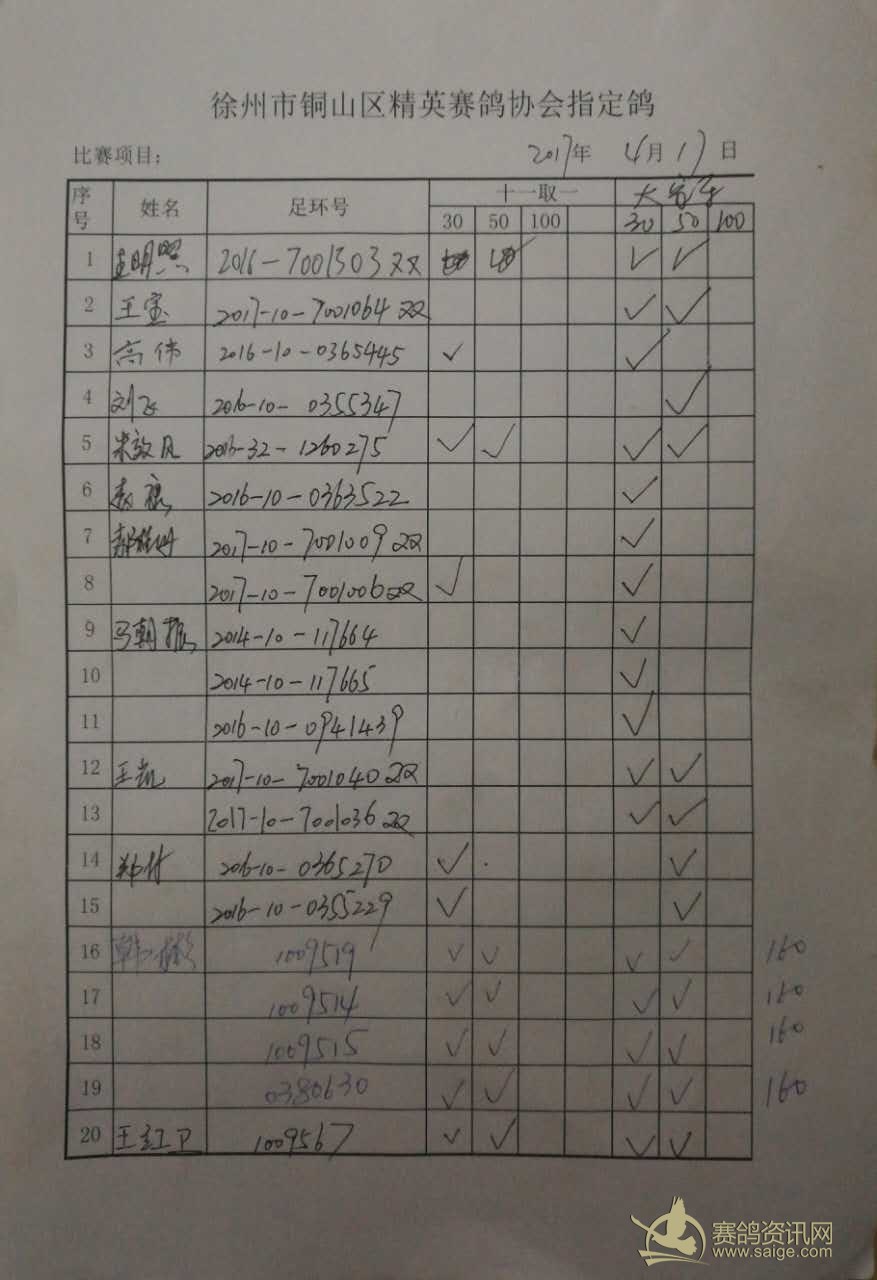 徐州市铜山区精英赛鸽协会指定鸽
比赛项目： 2017年 4月 17日
序号 姓名 足环号 十一取一 大
30 50 100 30 50 100
1 明照 2016-7001303 双 ✓ ✓
2 王宝 2017-10-7001064 双 ✓ ✓
3 高伟 2016-10-0365445 ✓ ✓
4 刘飞 2016-10-0355347 ✓
5 2016-32-1260275 ✓ ✓ ✓ ✓
6 2016-10-0363522 ✓
7 2017-10-7001009 双 ✓
8 2017-10-7001006 双 ✓ ✓
9 马朝振 2014-10-117664 ✓
10 2014-10-117665 ✓
11 2016-10-0941439 ✓
12 王凯 2017-10-7001040 双 ✓ ✓
13 2017-10-7001036 双 ✓ ✓
14 2016-10-0365270 ✓ ✓
15 2016-10-0355229 ✓ ✓
16 韩 1009519 ✓ ✓ ✓ ✓ 160
17 1009514 ✓ ✓ ✓ ✓ 160
18 1009515 ✓ ✓ ✓ ✓ 160
19 0380630 ✓ ✓ ✓ ✓ 160
20 王红卫 1009567 ✓ ✓ ✓ ✓
赛鸽资讯网
www.saige.com